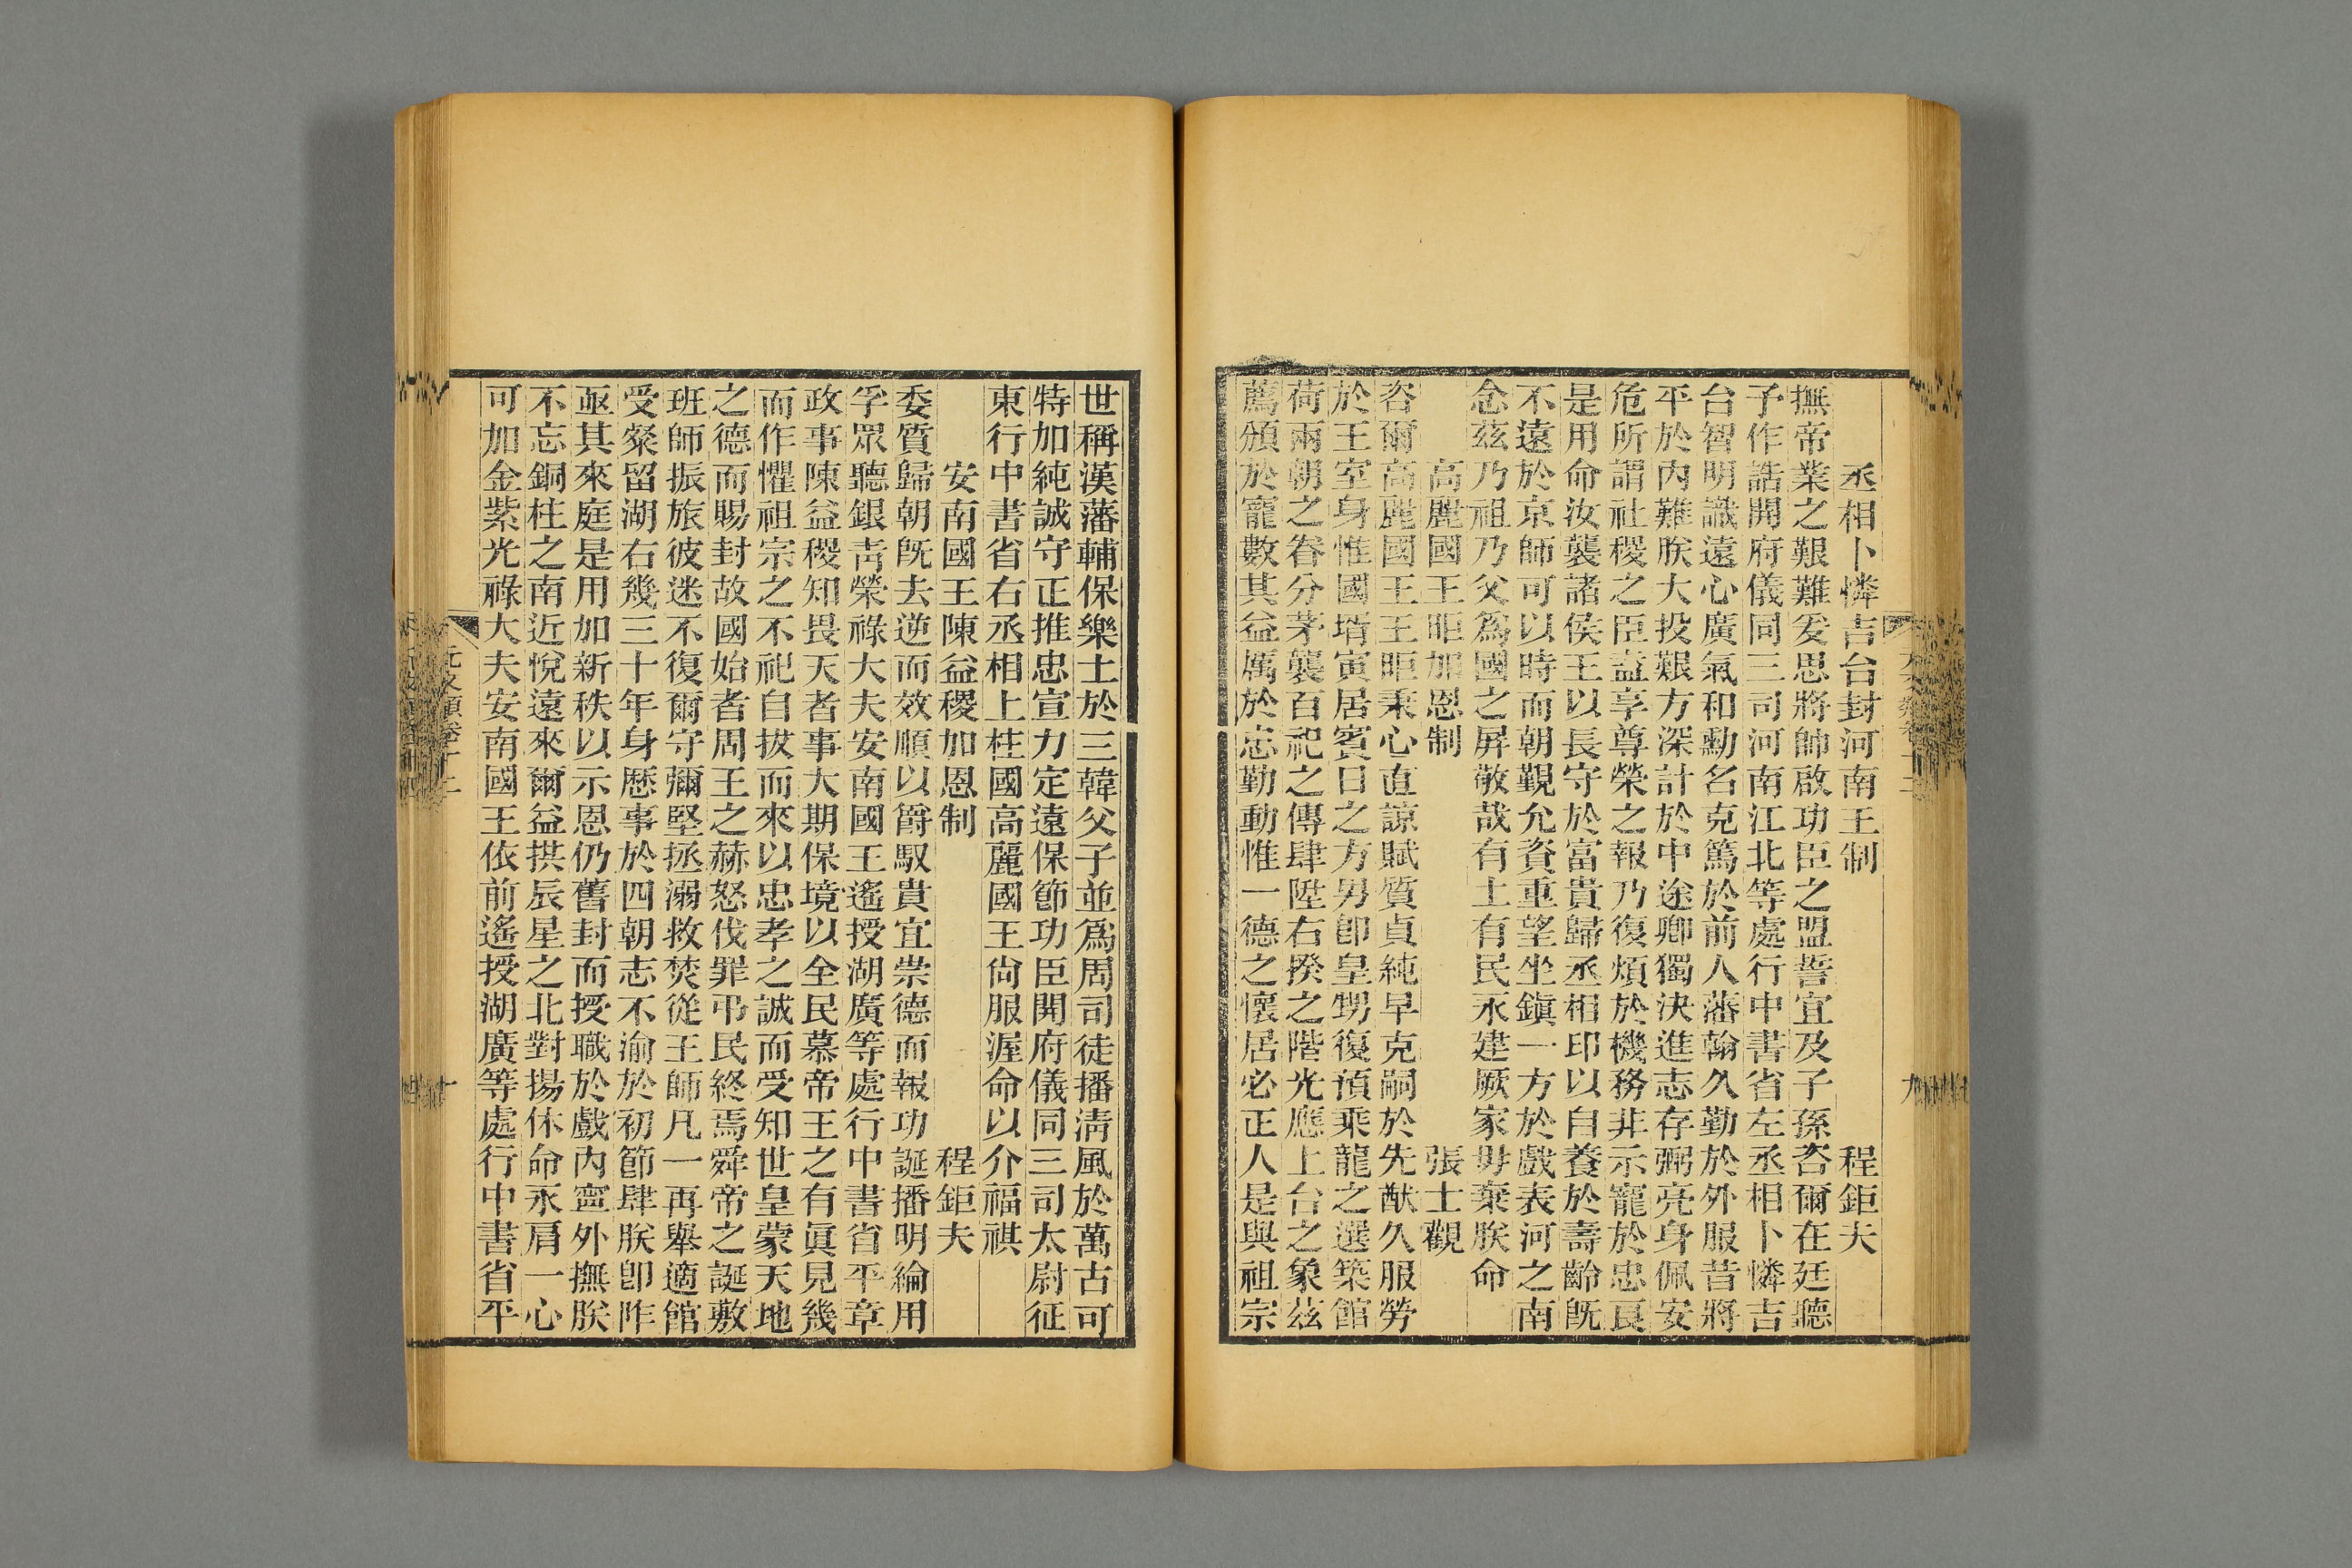 丞相卜憐吉台封河南王制 程鉅夫
撫帝業之艱難爰思將帥啟功臣之盟誓宜及子孫咨爾在廷聽
予作誥開府儀同三司河南江北等處行中書省左丞相卜憐吉
台智明識遠心廣氣和勳名克篤於前人藩翰久勤於外服昔將
平於內難朕大投艱方深計於中途卿獨決進志存弼亮身佩安
危所謂社稷之臣盍享尊榮之報乃復煩於機務非示寵於忠良
是用命汝襲諸侯王以長守於富貴歸丞相印以自養於壽齡既
不遠於京師可以時而朝覲允資重望坐鎭一方於戲表河之南
念茲乃祖乃父爲國之屏敬哉有土有民永建厥家毋棄朕命
高麗國王昛加恩制 張士觀
咨爾高麗國王王昛秉心直諒賦質貞純早克嗣於先猷久服勞
於王室身惟國壻寅居賓日之方男卽皇甥復預乘龍之選築館
荷兩朝之眷分茅襲百祀之傳肆陞右揆之階光應上台之象茲
薦頒於寵數其益厲於忠勤動惟一德之懷居必正人是與祖宗
九
世稱漢藩輔保樂土於三韓父子並爲周司徒播淸風於萬古可
特加純誠守正推忠宣力定遠保節功臣開府儀同三司太尉征
東行中書省右丞相上柱國高麗國王尙服渥命以介福祺
安南國王陳益稷加恩制 程鉅夫
委質歸朝旣去逆而效順以爵馭貴宜崇德而報功誕播明綸用
孚眾聽銀靑榮祿大夫安南國王遙授湖廣等處行中書省平章
政事陳益稷知畏天者事大期保境以全民慕帝王之有眞見幾
而作懼祖宗之不祀自拔而來以忠孝之誠而受知世皇蒙天地
之德而賜封故國始者周王之赫怒伐罪弔民終焉舜帝之誕敷
班師振旅彼迷不復爾守彌堅拯溺救焚從王師凡一再舉適館
受粲留湖右幾三十年身歷事於四朝志不渝於初節肆朕卽阼
亟其來庭是用加新秩以示恩仍舊封而授職於戲內寧外撫朕
不忘銅柱之南近悅遠來爾益拱辰星之北對揚休命永肩一心
可加金紫光祿大夫安南國王依前遙授湖廣等處行中書省平
元文類卷十二